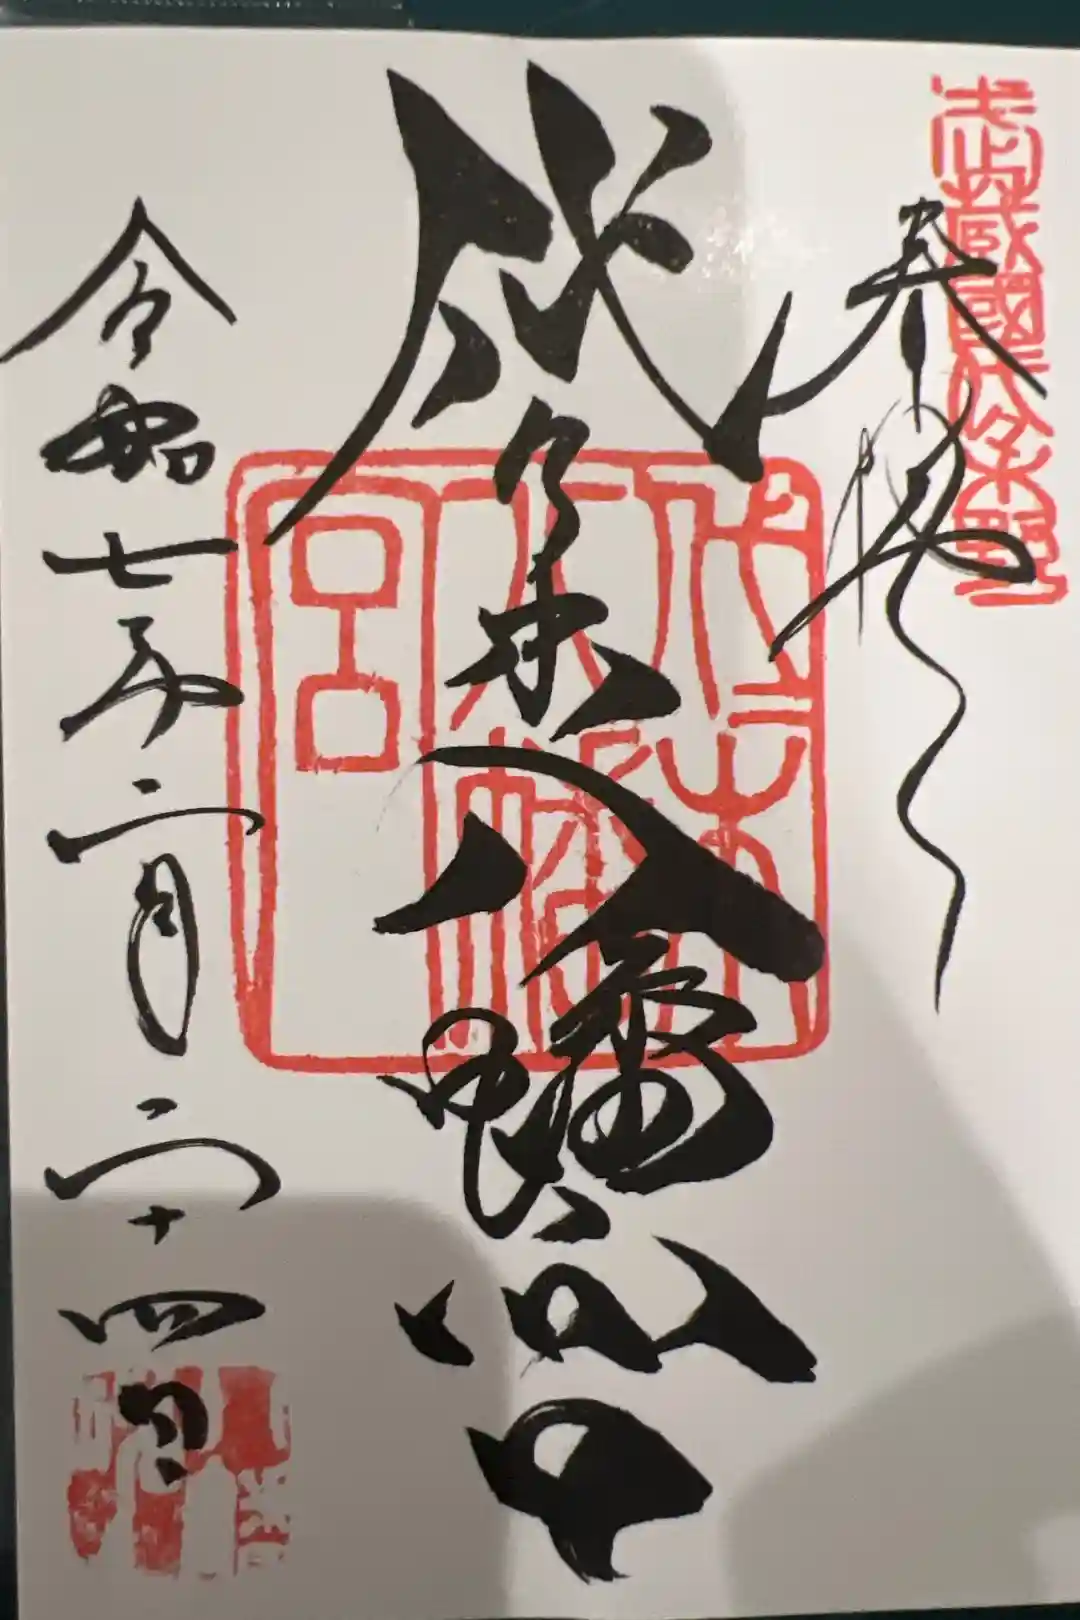 武蔵國代々木野
奉拝
代々木八幡宮
代々木八幡宮
令和七年二月二十四日